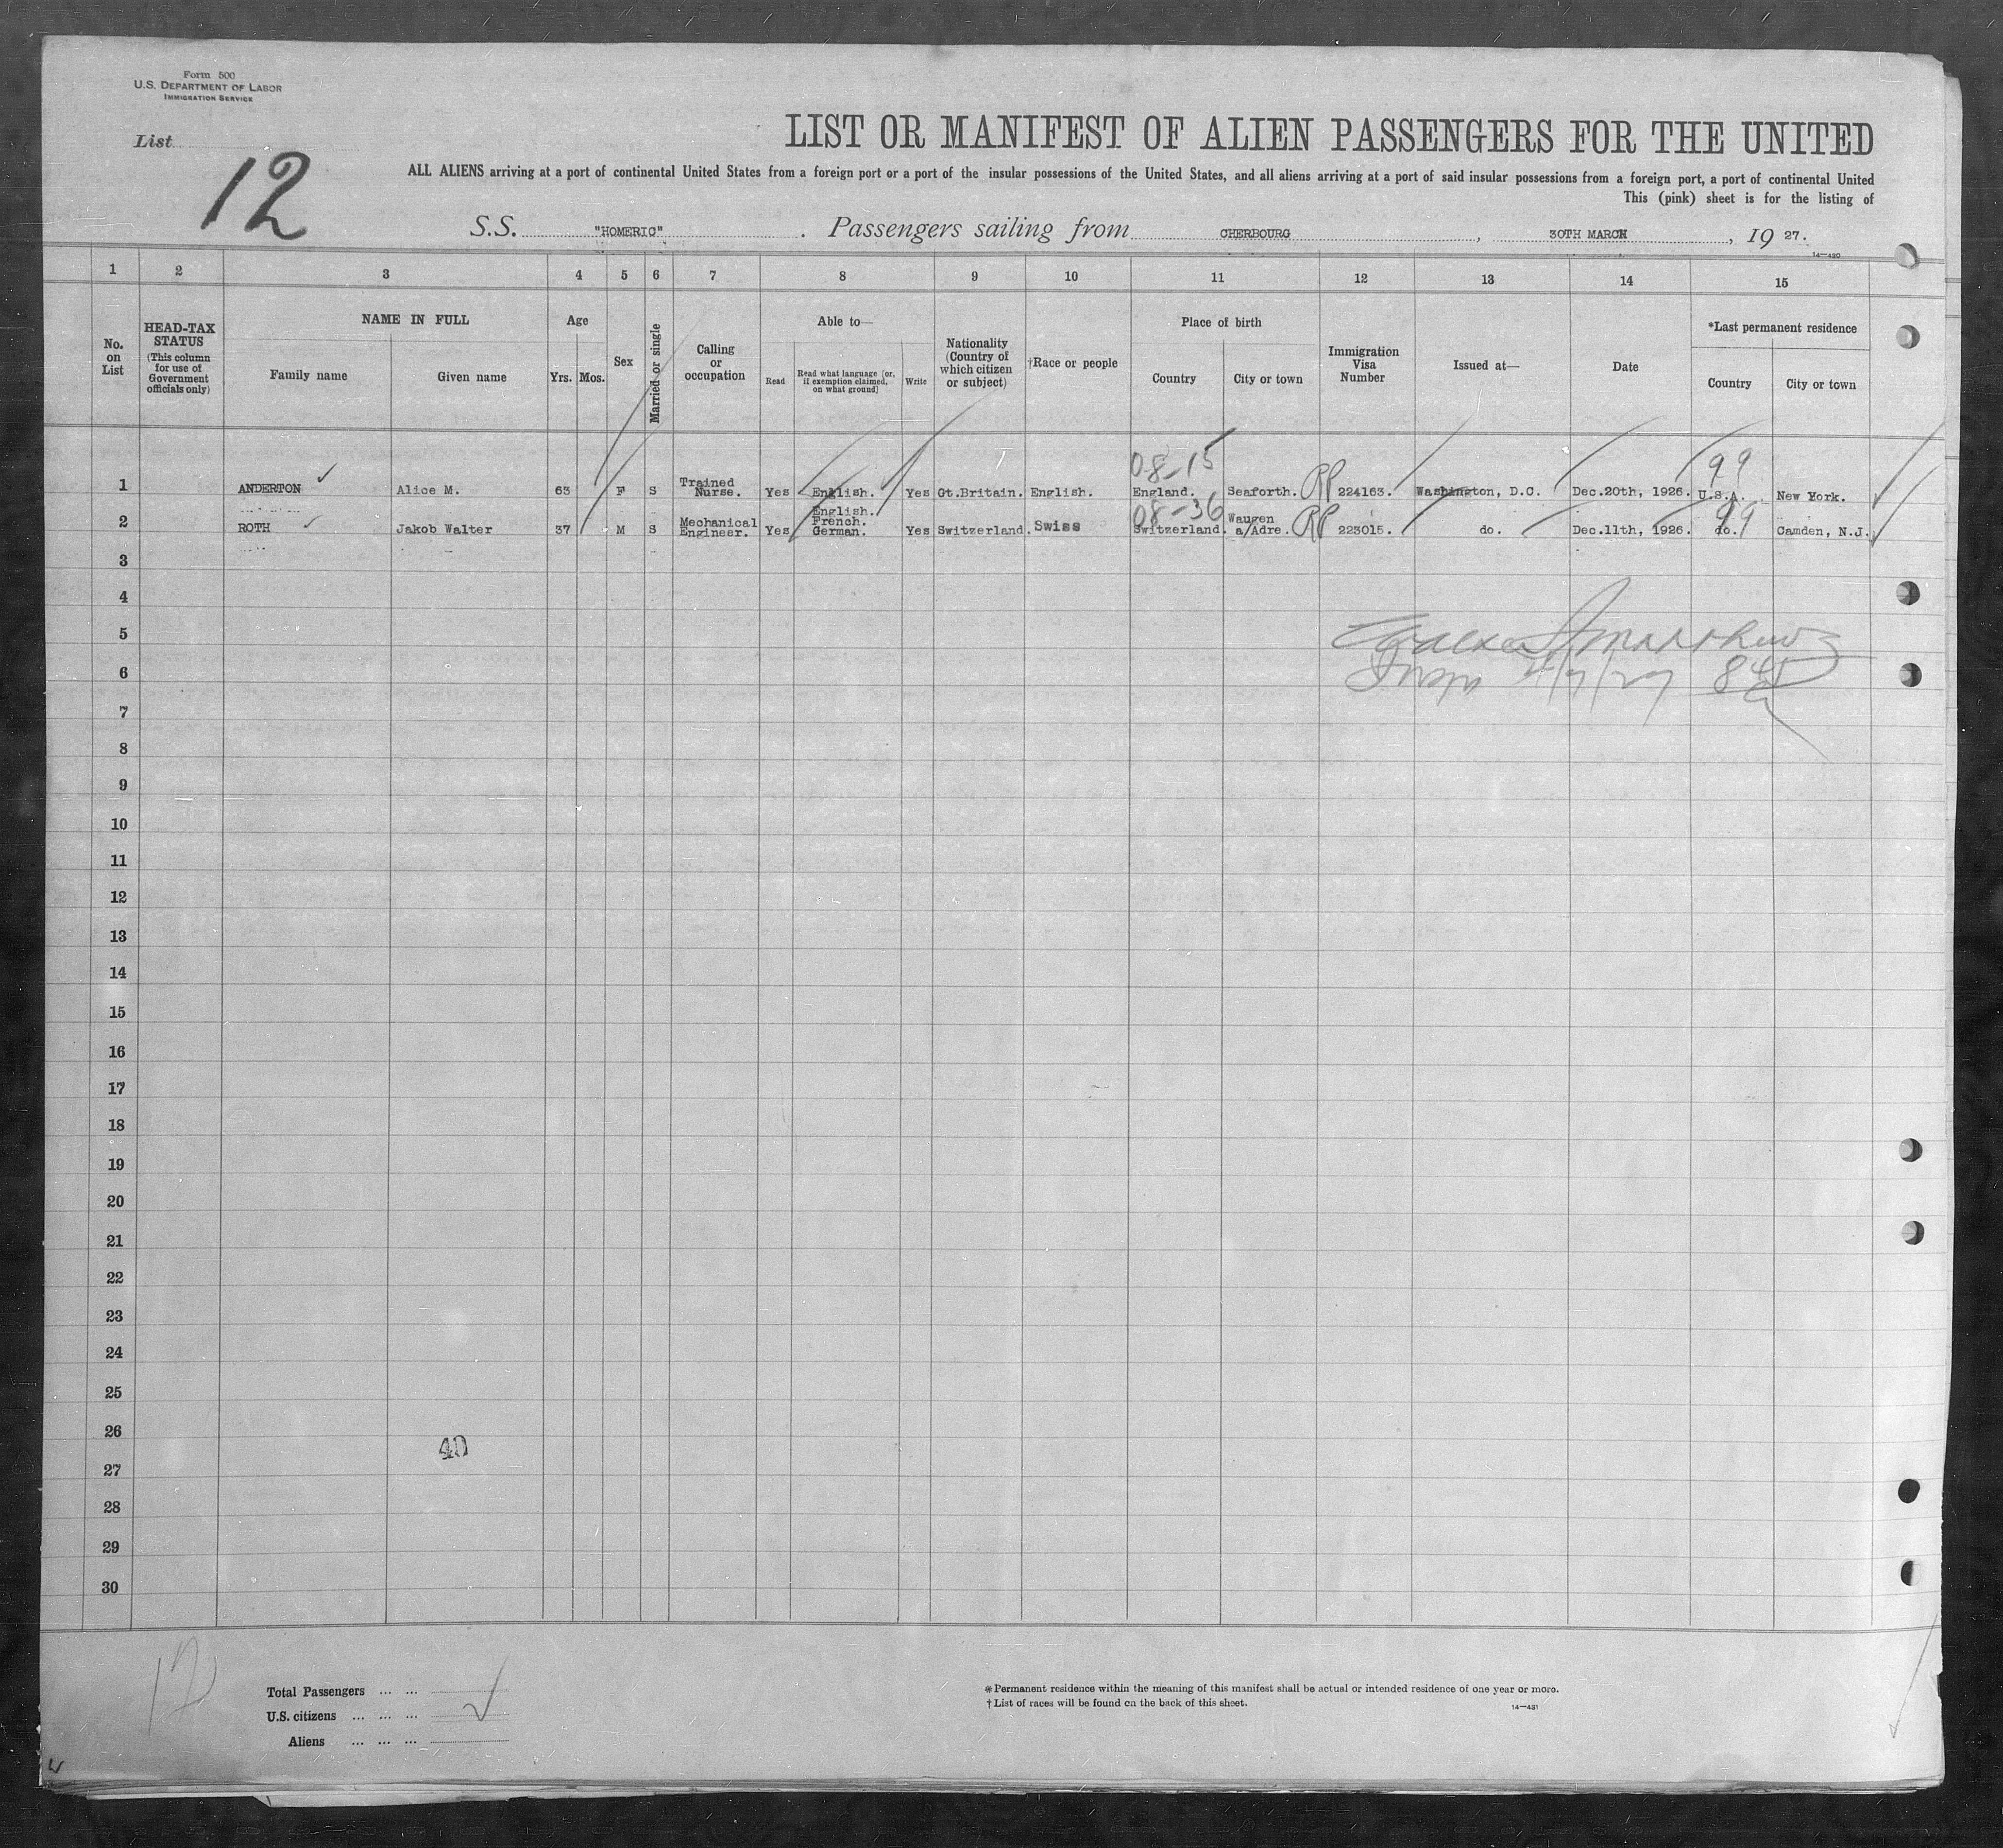 Form 500
U.S. DEPARTMENT OF LABOR
IMMIGRATION SERVICE
List
12
LIST OR MANIFEST OF ALIEN PASSENGERS FOR THE UNITED
ALL ALIENS arriving at a port of continental United States from a foreign port or a port of the insular possessions of the United States, and all aliens arriving at a port of said insular possessions from a foreign port, a port of continental United
This (pink) sheet is for the listing of
S.S. "HOMERIC". Passengers sailing from CHERBOURG, 30TH MARCH, 19 27.
14—430
1 2 3 4 5 6 7 8 9 10 11 12 13 14 15
No. on List
HEAD-TAX STATUS (This column for use of Government officials only)
NAME IN FULL
Family name
Given name
Age
Yrs. Mos.
Sex
Married or single
Calling or occupation
Able to—
Read
Read what language [or, if exemption claimed, on what ground]
Write
Nationality (Country of which citizen or subject)
†Race or people
Place of birth
Country
City or town
Immigration Visa Number
Issued at—
Date
*Last permanent residence
Country
City or town
08-15
99
1 ANDERTON Alice M. 63 F S Trained Nurse. Yes English. Yes Gt.Britain. English. England. Seaforth. RP 224163. Washington, D.C. Dec.20th, 1926. U.S.A. New York.
08-36
99
2 ROTH Jakob Walter 37 M S Mechanical Engineer. Yes English. French. German. Yes Switzerland. Swiss Switzerland. Waugen a/Adre. RP 223015. do. Dec.11th, 1926. do. Camden, N.J.
3
4
5
6
7
8
9
10
11
12
13
14
15
16
17
18
19
20
21
22
23
24
25
26
40
27
28
29
30
12
Total Passengers ... ...
U.S. citizens ... ... ...
Aliens ... ... ...
*Permanent residence within the meaning of this manifest shall be actual or intended residence of one year or more.
†List of races will be found on the back of this sheet.
14—431